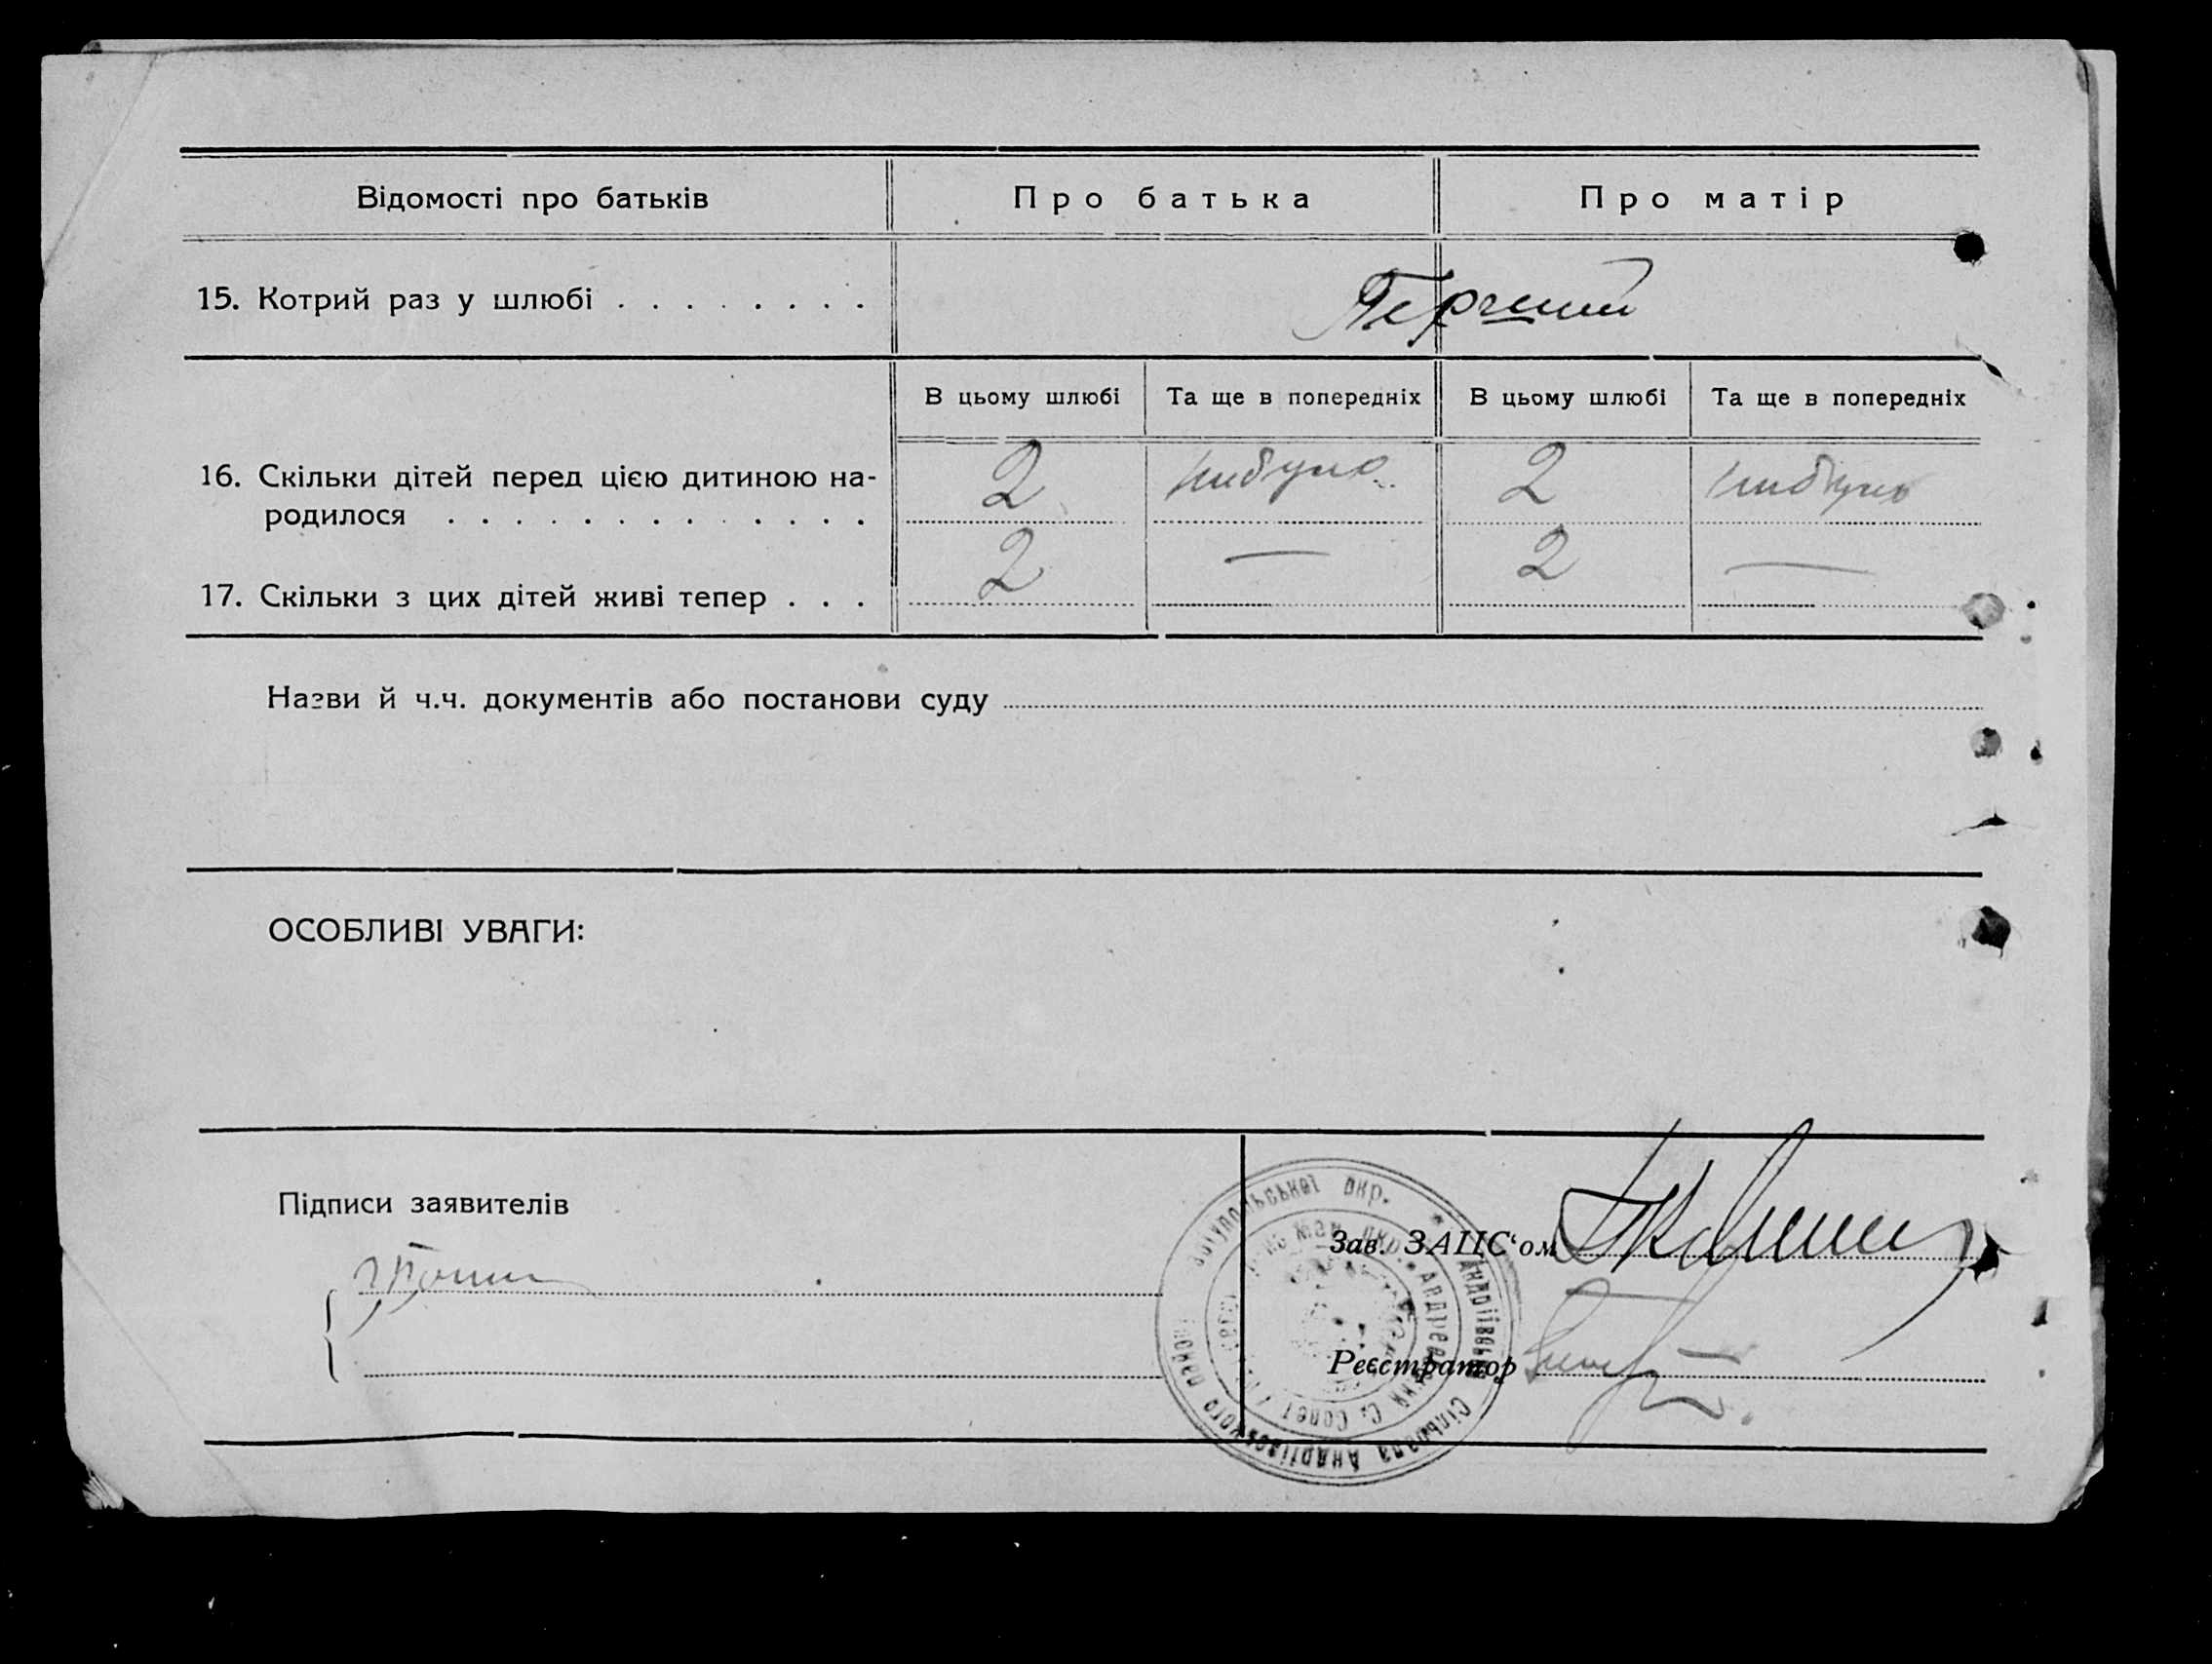 Відомості про батьків
Про батька
Про матір
15. Котрий раз у шлюбі . . . . . . . .
Перший
В цьому шлюбі
Та ще в попередніх
В цьому шлюбі
Та ще в попередніх
16. Скільки дітей перед цією дитиною на-
родилося . . . . . . . . . . . . .
2
нибуло
2
нибуло
17. Скільки з цих дітей живі тепер . . .
2
—
2
—
Назви й ч.ч. документів або постанови суду
ОСОБЛИВІ УВАГИ:
Підписи заявителів
Зав. ЗАГС‘ом
Реєстратор
Андріівська Сільрада Андріівського
окр.